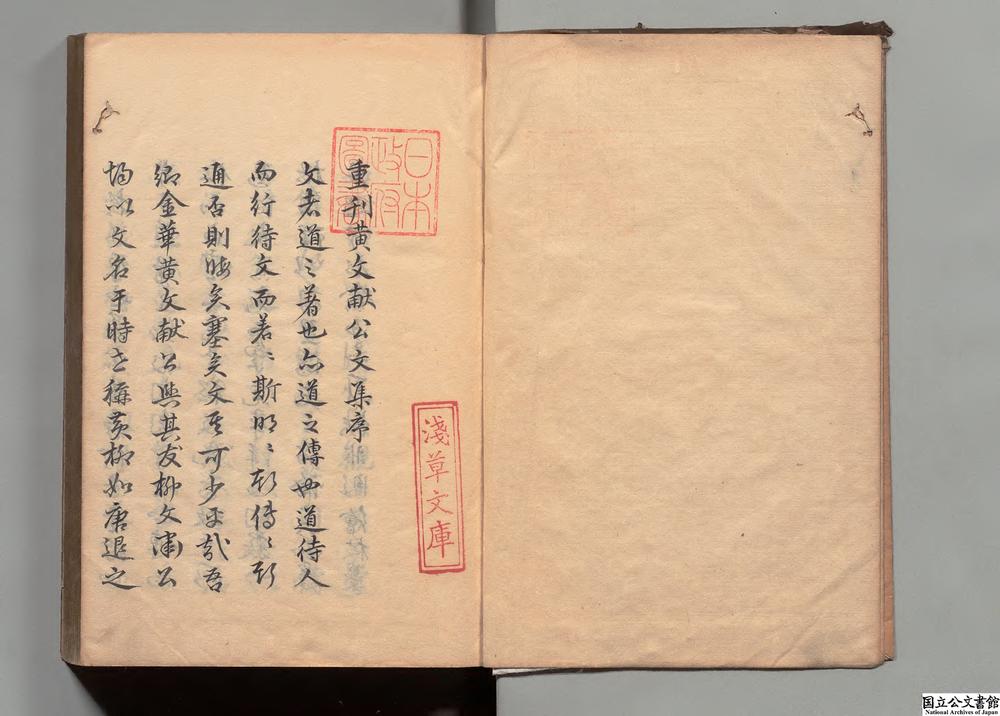 重刊黄文献公文集序
文者道之著也亦道之傳也道待人
而行待文而著〻斯明〻斯傳〻斯
通否則晦矣塞矣文其可少乎哉吾
鄉金華黄文献公與其友柳文肅公
以文名于時世稱黄柳如唐退之
日本
政府
圖書
淺草文庫
国立公文書館
National Archives of Japan